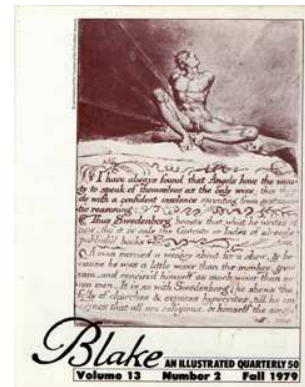 I have always found that Angels have the vani-
ty to speak of themselves as the only wise; this they
do with a confident insolence sprouting from systema-
tic reasoning:
Thus Swedenborg boasts that what he writes is
new; tho' it is only the Contents or Index of already
publish'd books
A man carried a monkey about for a shew, & be-
cause he was a little wiser than the monkey, grew
vain, and conciev'd himself as much wiser than se-
ven men. It is so with Swedenborg; he shews the
folly of churches & exposes hypocrites, till he im-
agines that all are religious, & himself the single
Blake
AN ILLUSTRATED QUARTERLY 50
Volume 13 Number 2 Fall 1979